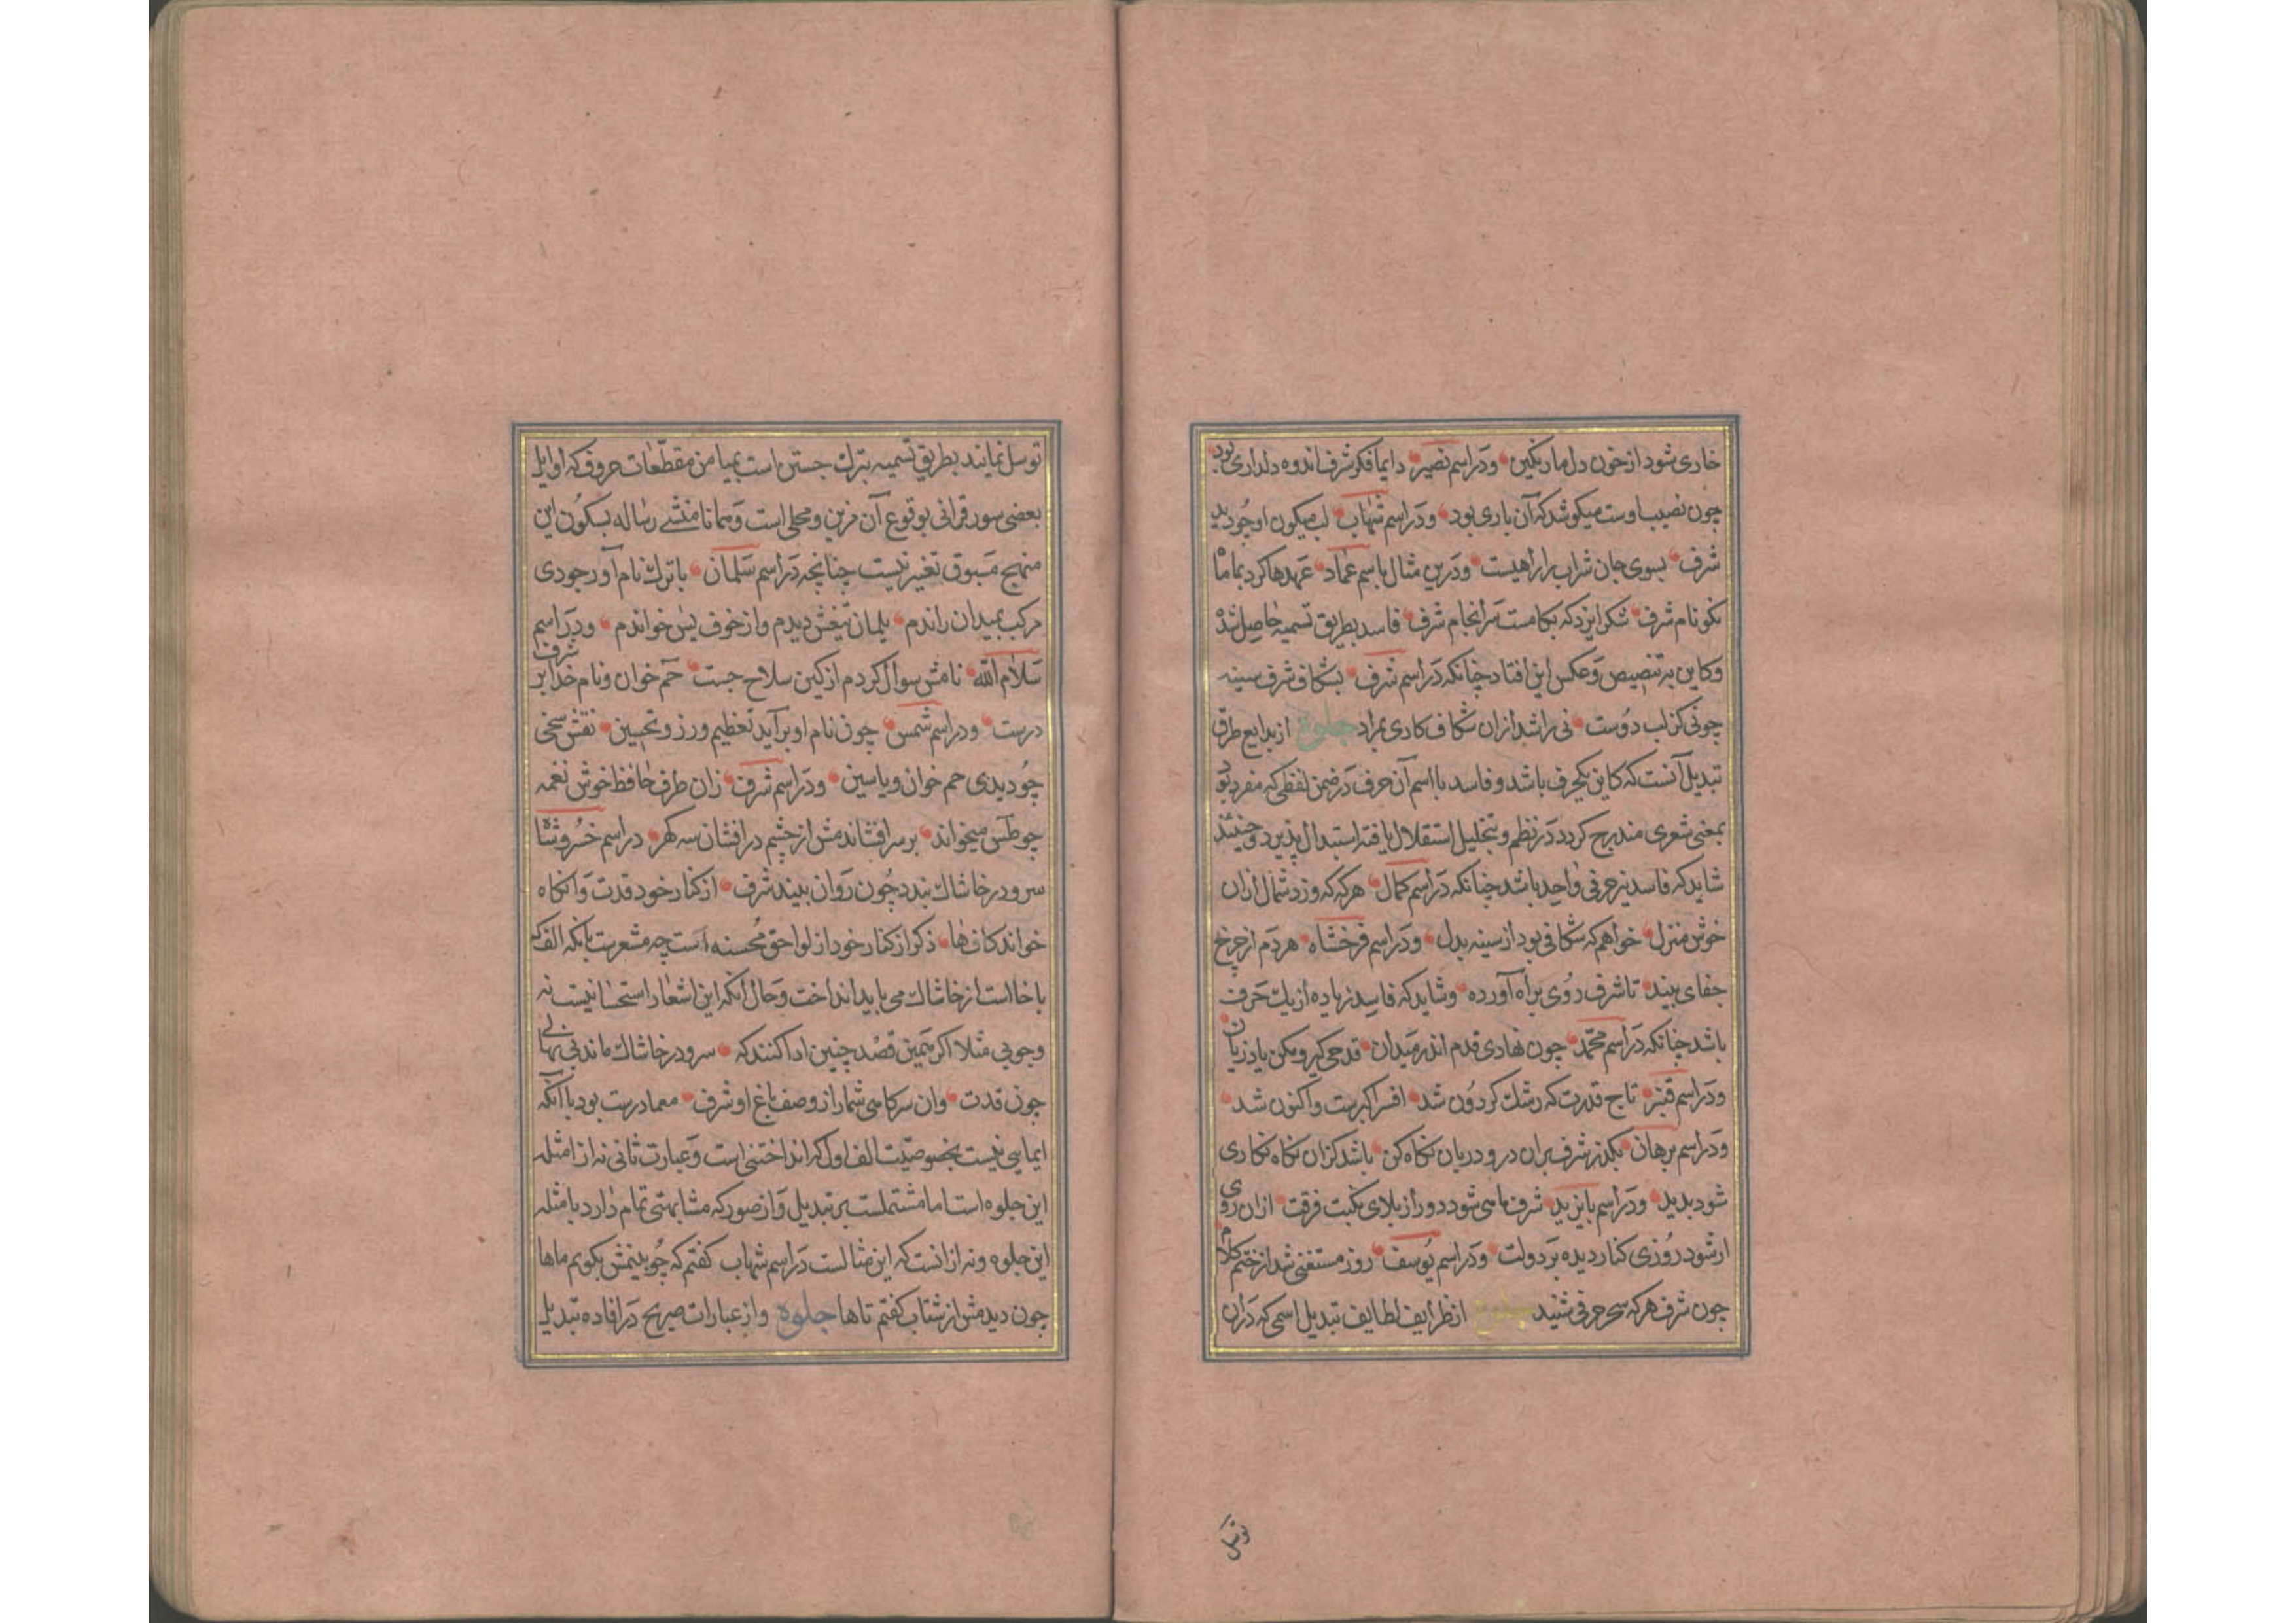 خاری شود از خون دل ما رنگین ودر اسم نصیر دایما فکر شرف اندوه دلداری بود
چون نصیب اوست میکوشد که آن باری بود ودر اسم شهاب لب میکون او چو دید
شرف بسوی جان شراب را راهیست ودرین مثال باسم عماد عهدها کرد بما ماه
نکو نام شرف شکر ایزد که بکامست سرانجام شرف فاسد بطریق تسمیه حاصل شده
وکاین به تنصیص وعکس این افتاد چنانکه در اسم شرف بشکاف شرف سینه
چونی کز لب دوست نی را شد ازان شکاف کاری بمراد جلوة از بدایع طرق
تبدیل آنست که کاین یکحرف باشد وفاسد با اسم آن حرف در ضمن لفظی که مفرد بود
بمعنی شعری مندرج کردد در نظم وبتحلیل استقلال یافته استبدال پذیرد وحینئذ
شاید که فاسد نیز حرفی واحد باشد چنانکه در اسم کمال هرکه که وزد شمال ازان
خوش منزل خواهم که شکافی بود از سینه بدل ودر اسم فرخشاه هر دم از چرخ
جفای بیند تا شرف روی براه آورده وشاید که فاسد زیاده از یک حرف
باشد چنانکه در اسم محمد چون نهادی قدم اندر میدان قدحی کیر ومکن یاد زیان
ودر اسم قنبر تاج قدرت که رشک کردون شد افسر اکبرست واکنون شد
ودر اسم برهان بکذر شرف بران در ودربان نکاه کن باشد کزان نکاه نکاری
شود بدید ودر اسم بایزید شرف ما می شود دور از بلای نکبت فرقت ازان روی
ار شود روزی کنار دیده بر دولت ودر اسم یوسف روز مستغنی شد از ختم کلام
چون شرف هرکه سحر حرفی شنید جلوة از ظرایف لطایف تبدیل اسمی که دران
توسل
توسل نمایند بطریق تسمیه تبرک جستن است بمیامن مقطعات حروف که اوایل
بعضی سور قرانی بوقوع آن مزین ومحلی است وهمانا منشی رساله بسکون این
منهج مسبوق بغیر نیست چنانچه در اسم سلمان با ترک نام آور جودی
مرکب بمیدان راندم یلمان تیغش دیدم واز خوف یس خواندم ودر اسم
سلام الله نامش سوال کردم از کین سلاح جست حم خوان ونام خدا بر شرف
درست ودر اسم شمس چون نام او برآید تعظیم ورز وتحسین نقش سخی
چو دیدی حم خوان ویاسین ودر اسم شرف زان طرف حافظ خوش نغمه
چو طس میخواند بر سر افشاندمش از چشم درافشان سه کهر در اسم خسروشاه
سرو در خاشاک بندد چون روان بیند شرف از کنار خود قدت وانکاه
خواند کاف ها ذکر از کنار خود از لواحق محسنه است چه مشعرست بانکه الف که
با خا است از خاشاک می باید انداخت وحال آنکه این اشعار استحسانیست نه
وجوبی مثلا اکر بهمین قصد چنین ادا کنند که سرو در خاشاک ماند بی بهایی
چون قدت وان سرکا می شمار از وصف باغ او شرف معما درست بود با آنکه
ایمایی نیست بخصوصیت الف اول که انداختنی است وعبارت ثانی نه از امثله
این جلوه است اما مشتملست بر تبدیل واز صور که مشابهتی تمام دارد بامثله
این جلوه ونه ازانست که این مثالست در اسم شهاب کفتم که چو بینمش بکویم ماها
چون دیدمش از شتاب کفتم تاها جلوة واز عبارات صریح در افاده تبدیل